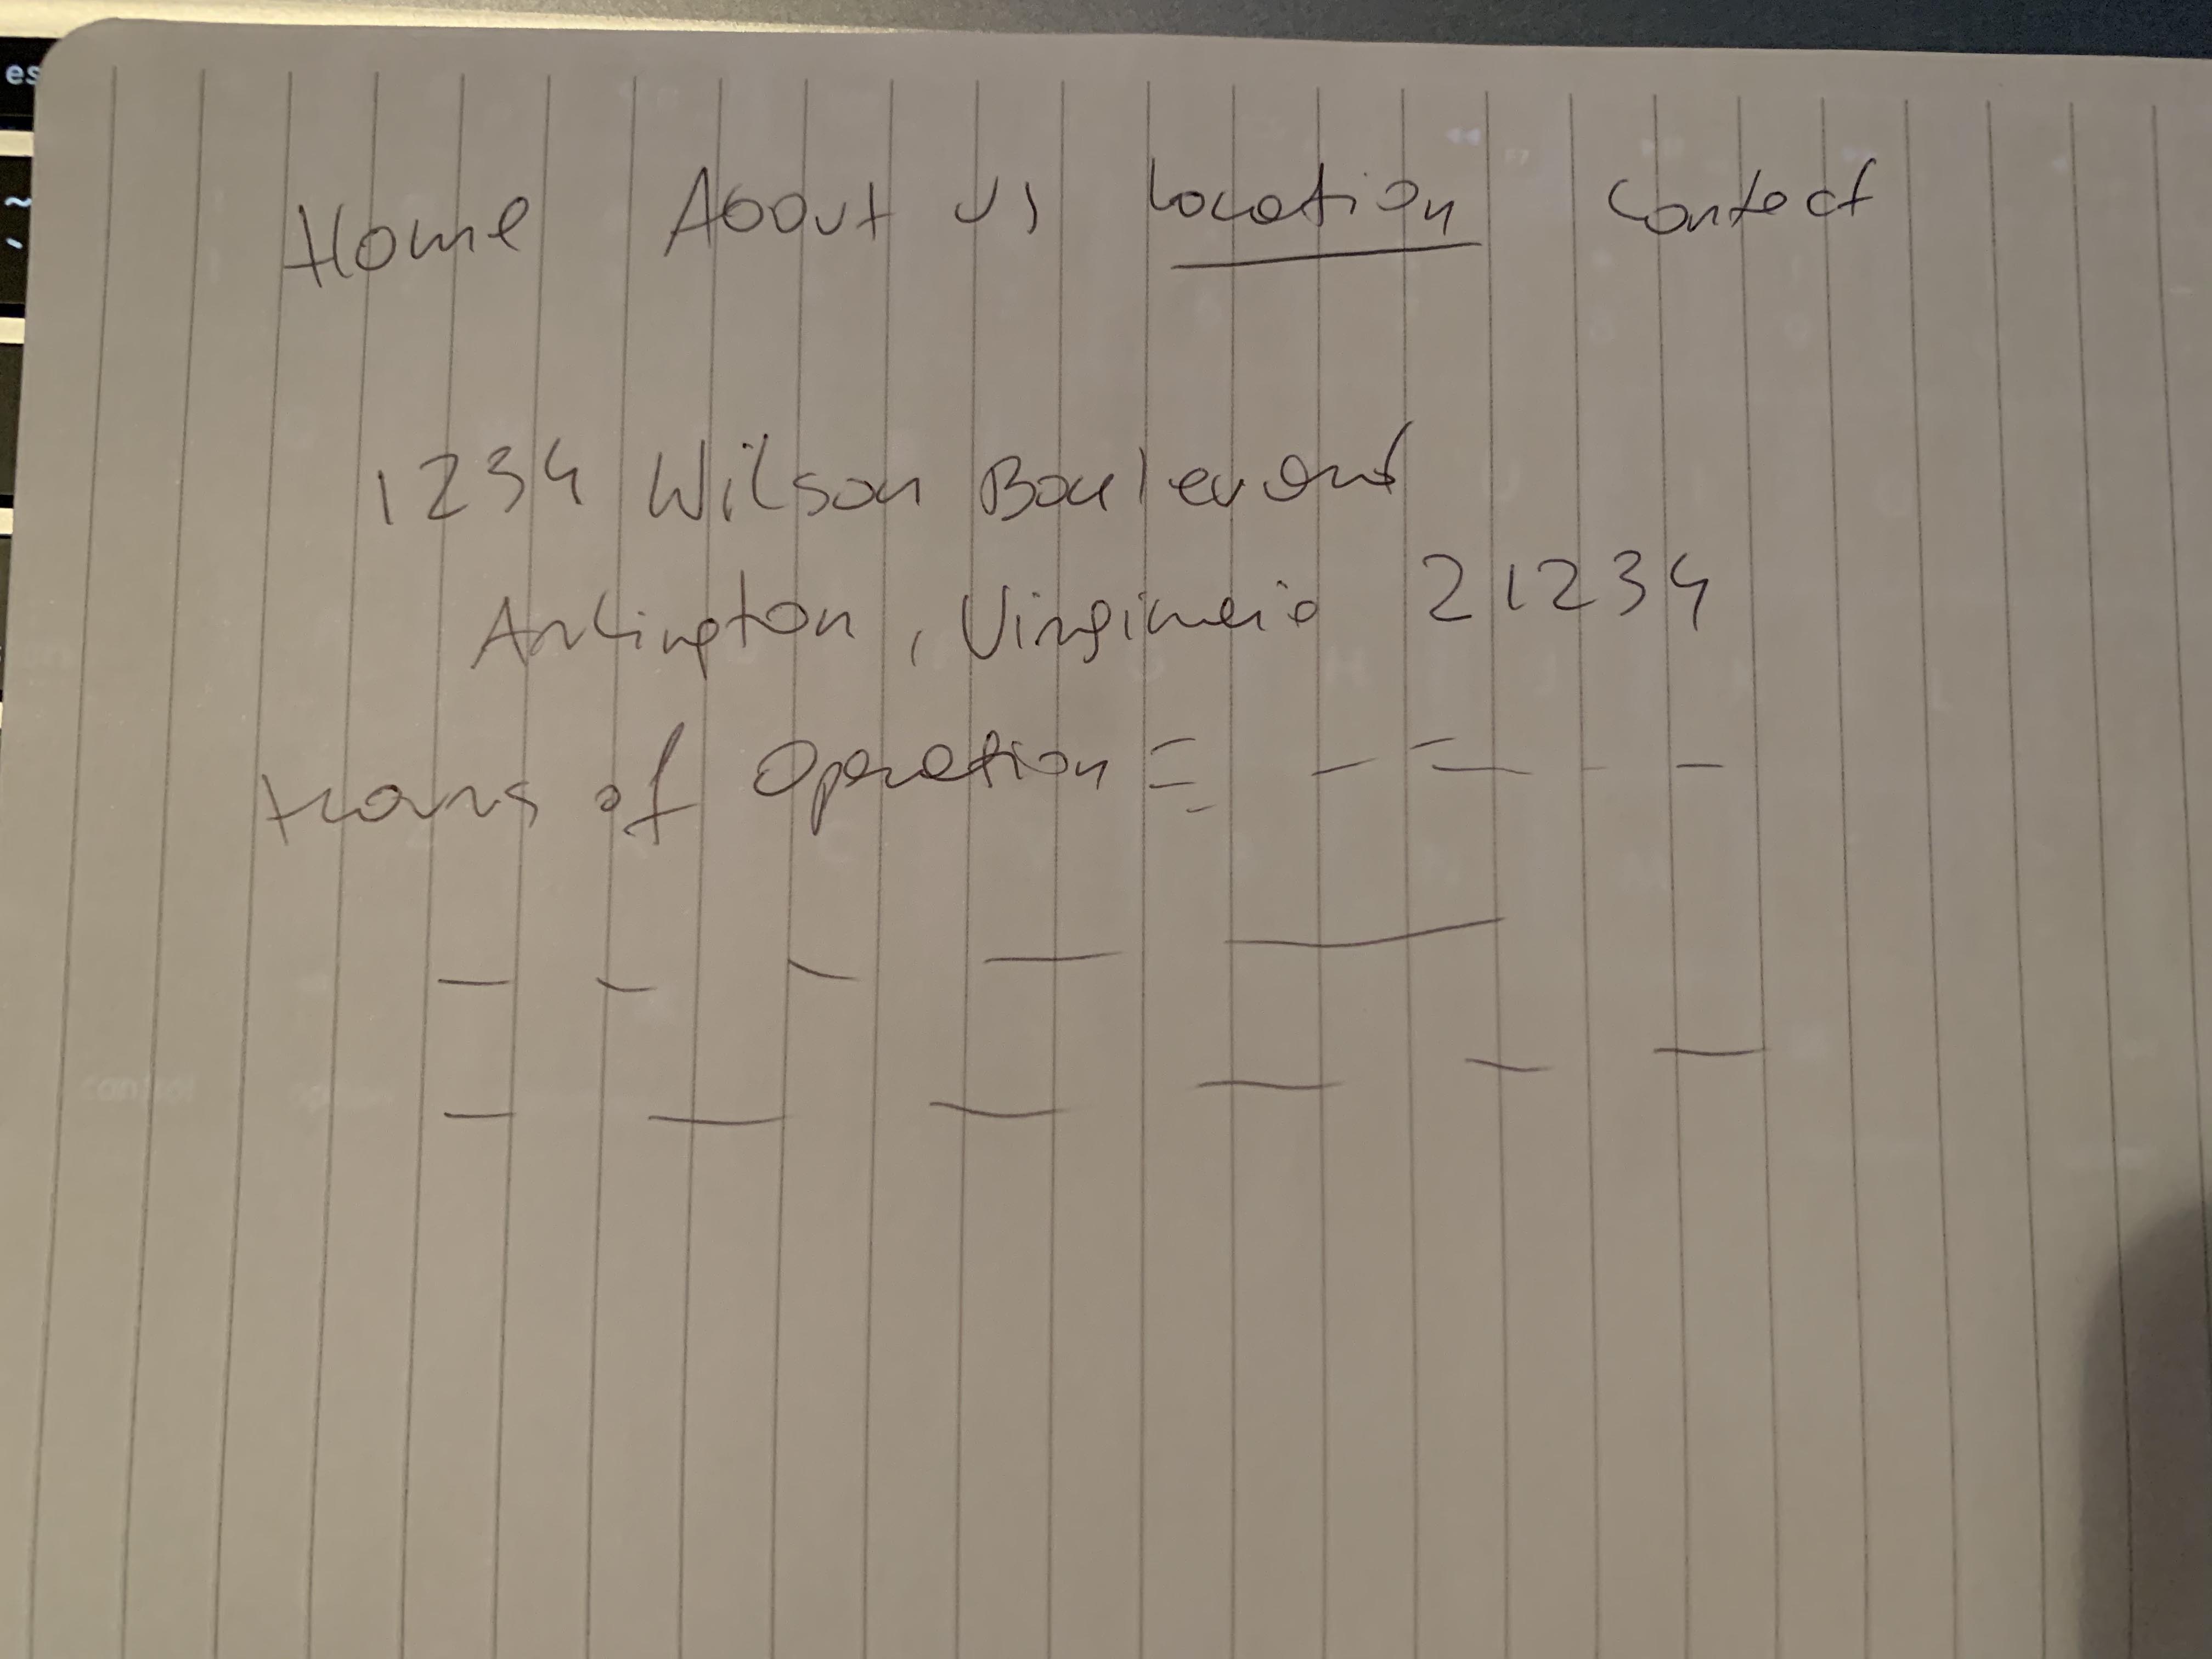 Home About Us Location Contact
1234 Wilson Boulevard
Arlington, Virginia 21234
Hours of Operation